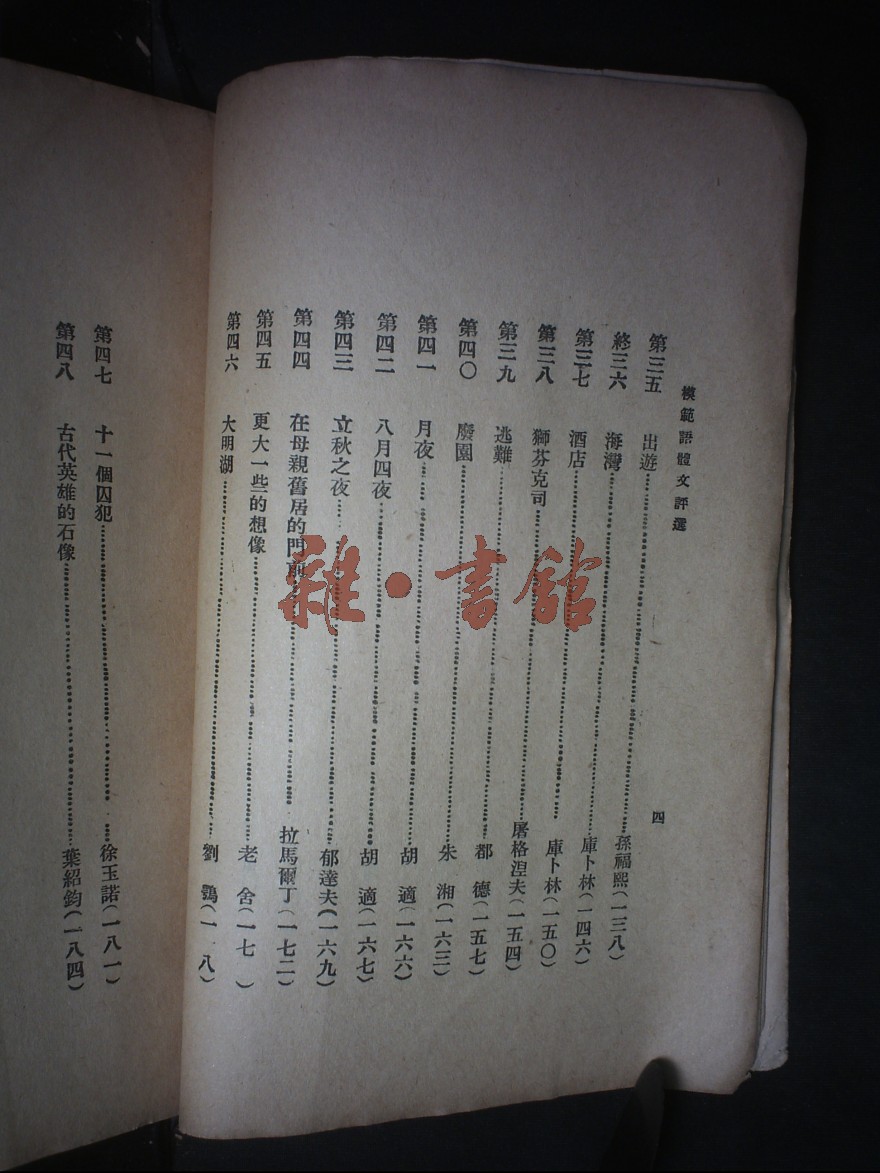 模範語體文評選
四
第三五 出遊 孫福熙(一三八)
終三六 海灣 庫卜林(一四六)
第三七 酒店 庫卜林(一五〇)
第三八 獅芬克司 屠格涅夫(一五四)
第三九 逃難 都德(一五七)
第四〇 廢園 朱湘(一六三)
第四一 月夜 胡適(一六六)
第四二 八月四夜 胡適(一六七)
第四三 立秋之夜 郁達夫(一六九)
第四四 在母親舊居的門前 拉馬爾丁(一七二)
第四五 更大一些的想像 老舍(一七 )
第四六 大明湖 劉鶚(一 八)
第四七 十一個囚犯 徐玉諾(一八一)
第四八 古代英雄的石像 葉紹鈞(一八四)
雜·書館